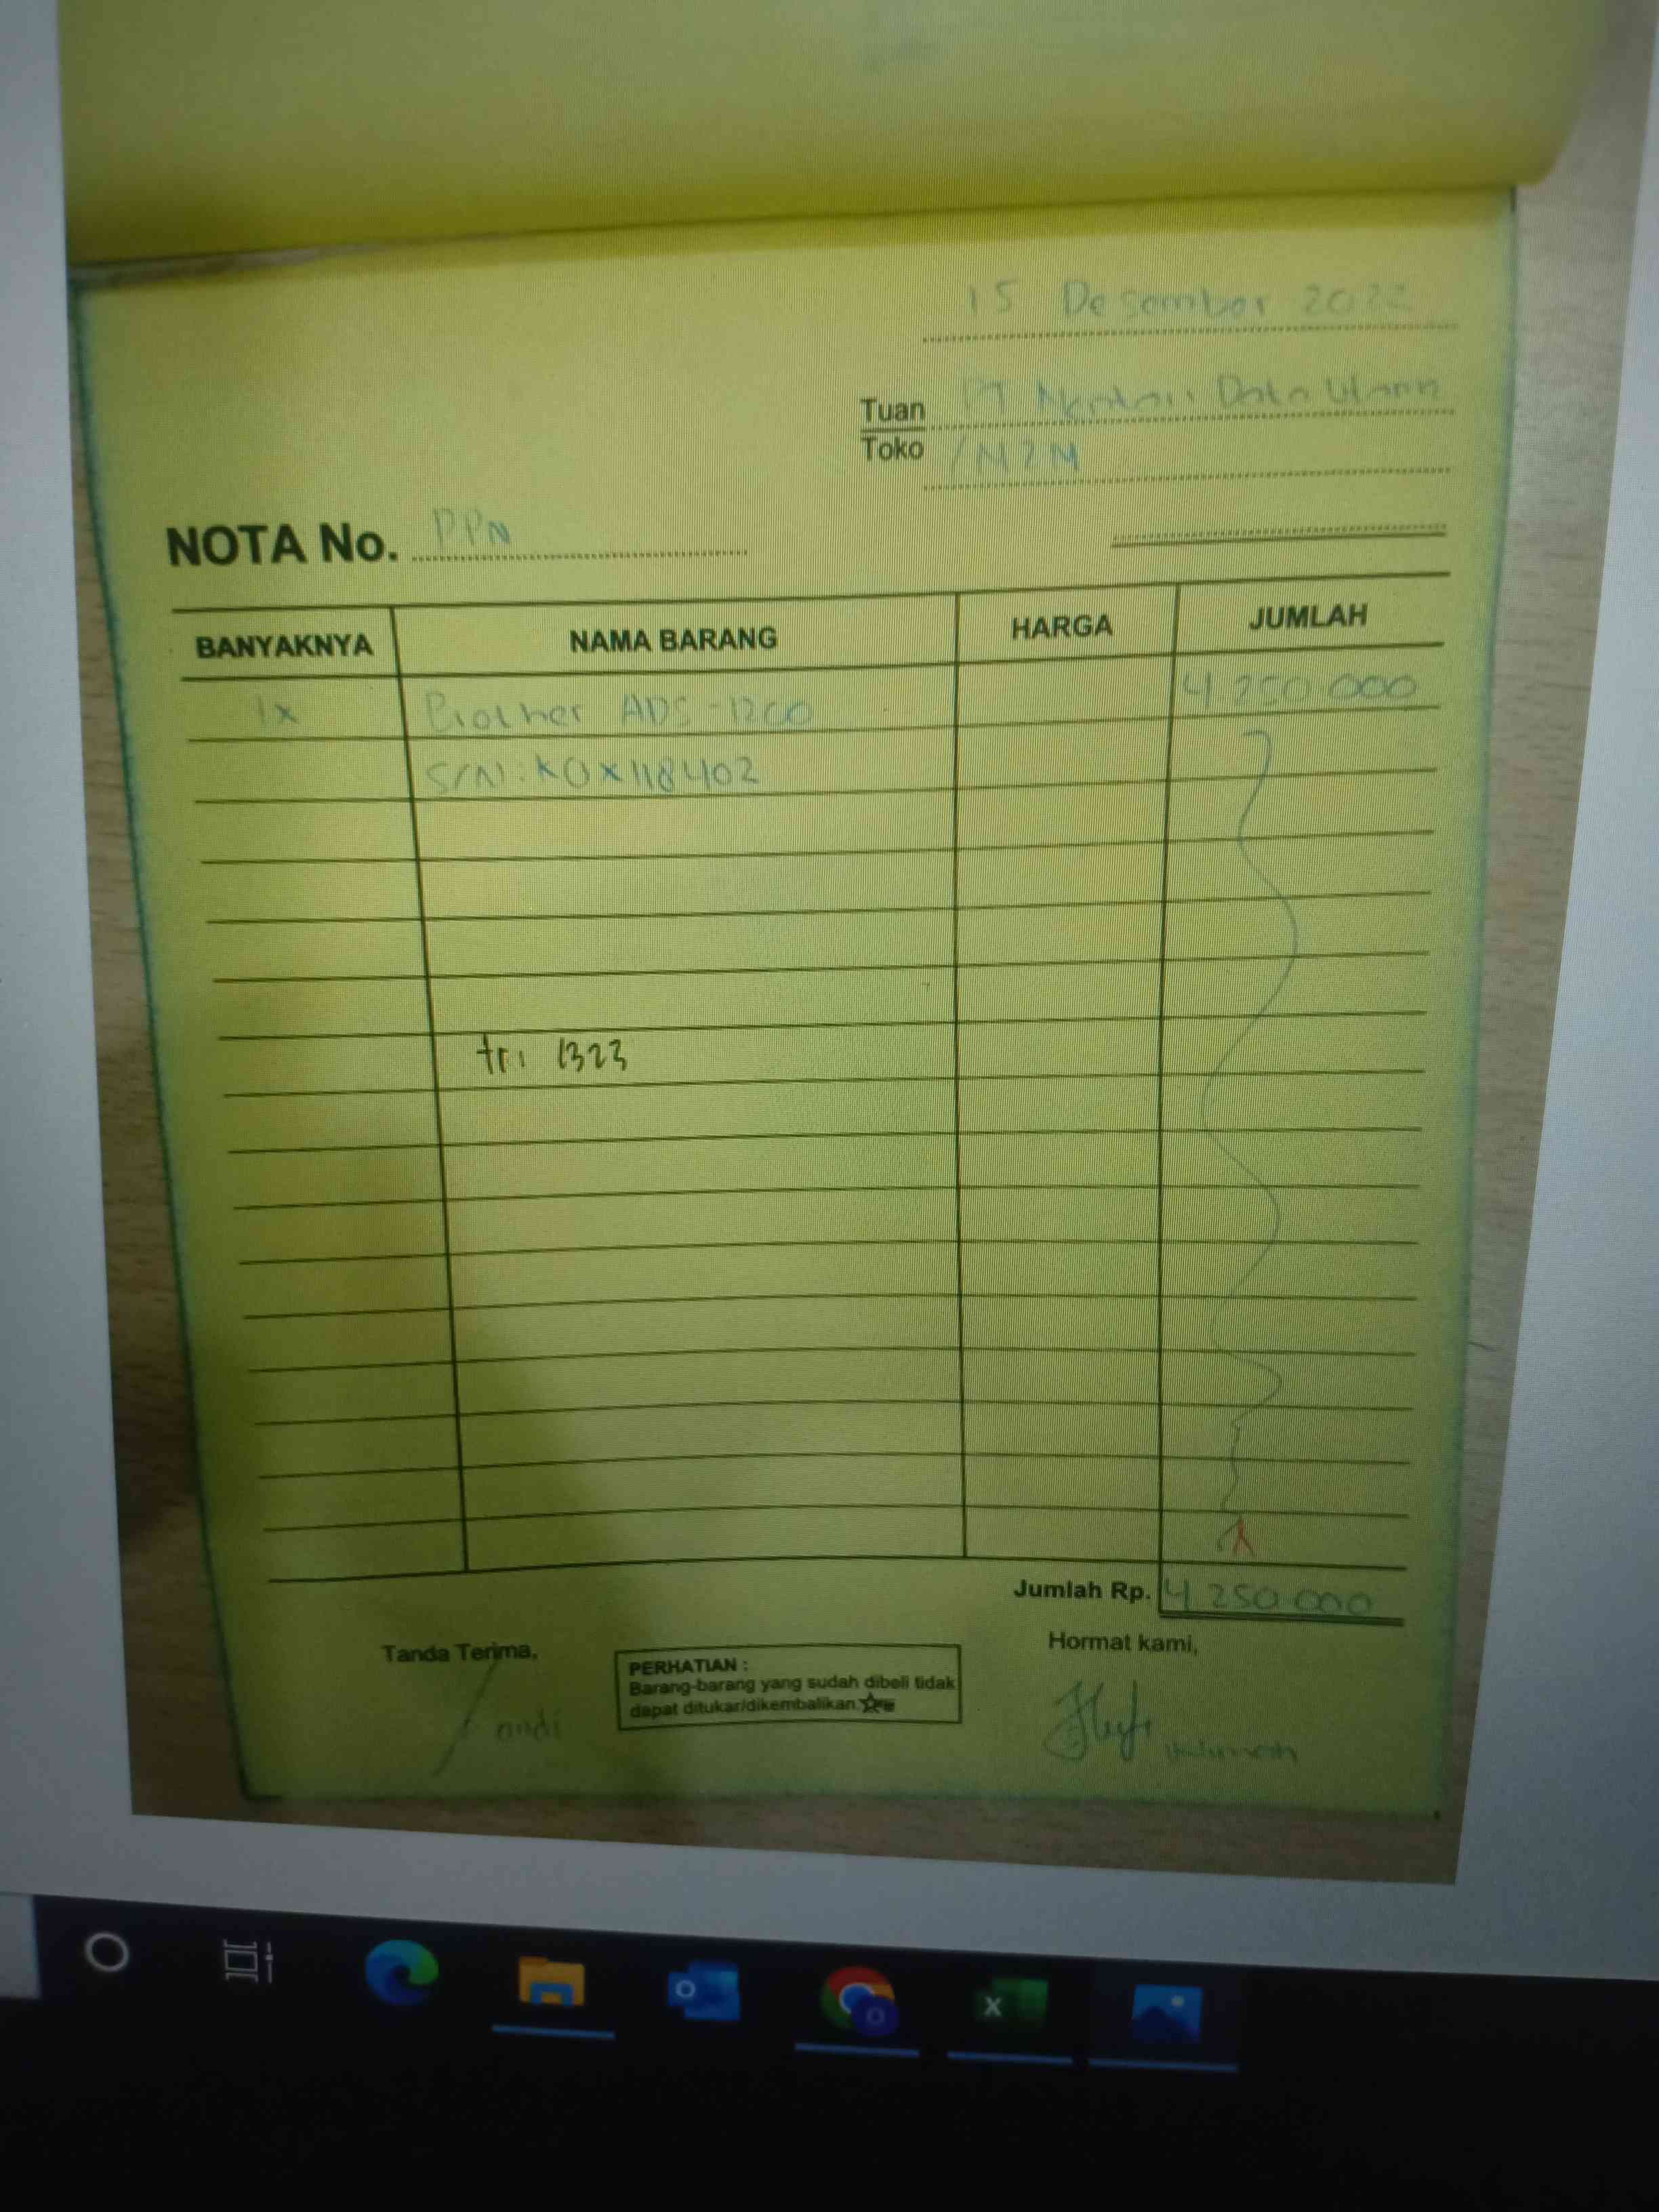 15 Desember 2022
Tuan PT Data Utama
Toko /M2M
NOTA No. PPN
BANYAKNYA NAMA BARANG HARGA JUMLAH
1x Brother ADS-1200 4 250 000
S/N: K0X118402
tri 1323
Jumlah Rp. 4 250 000
Tanda Terima,
Hormat kami,
PERHATIAN :
Barang-barang yang sudah dibeli tidak
dapat ditukar/dikembalikan
andi